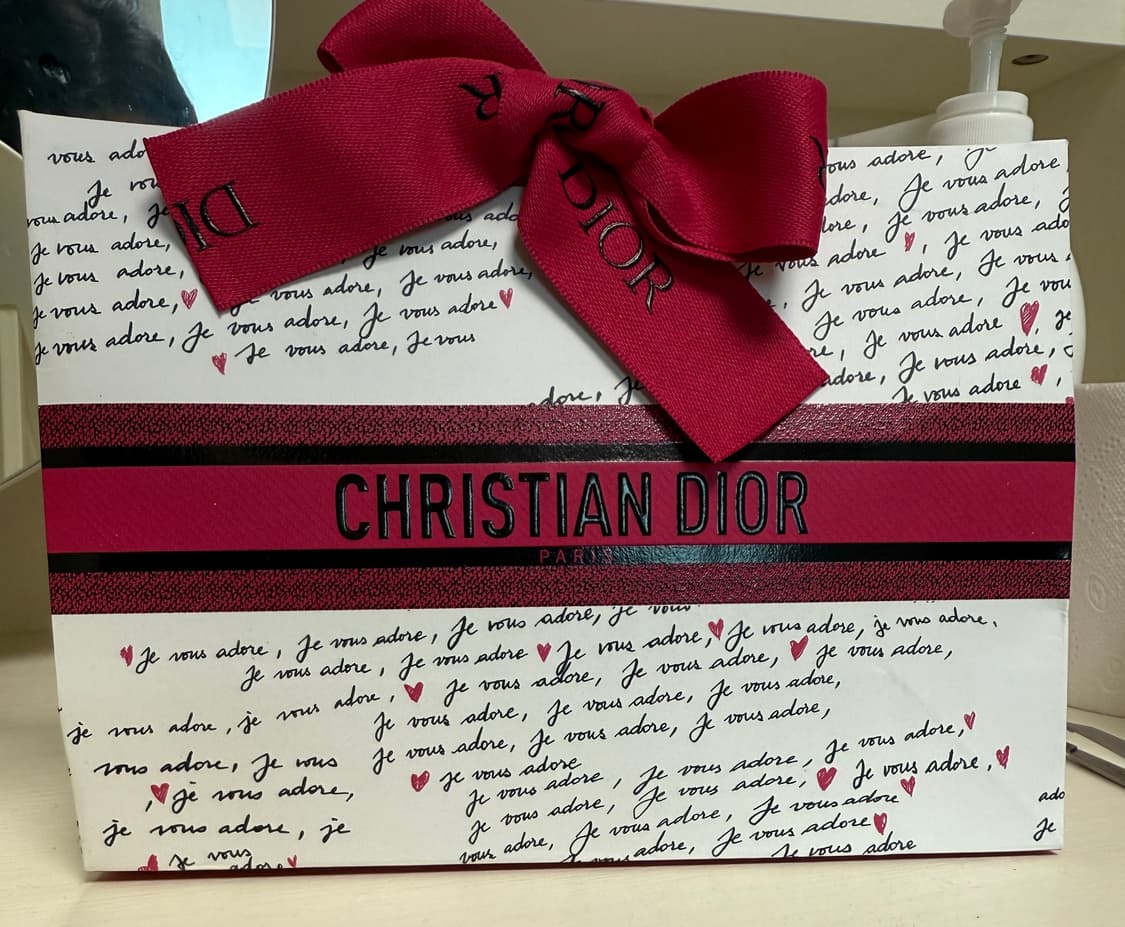 DI
R
R
DIOR
vous
Je
vous adore, Je
Je vous adore,
Je vous adore,
Je vous adore,
Je vous adore, Je vous adore, Je vous adore
Je vous adore, Je vous
Je vous adore,
vous adore, Je vous adore,
vous adore, Je
Je vous adore
Je vous adore,
Je vous adore
Je vous adore, Je vous
Je vous adore,
Je vous adore, Je
Je vous adore
CHRISTIAN DIOR
PARIS
Je vous adore, Je vous adore, Je vous adore, je vous
Je vous adore, Je vous adore Je vous adore, Je vous adore, je vous adore,
je vous adore, je vous adore, Je vous adore, Je vous adore, Je vous adore,
Je vous adore, Je vous adore, Je vous adore,
vous adore, Je vous Je vous adore, Je vous adore, Je vous adore,
je vous adore, Je vous adore
Je vous adore, Je vous adore, Je vous adore,
je vous adore, je Je vous adore, Je vous adore, Je vous adore,
vous adore, Je vous adore, Je vous adore
Je vous adore, Je vous adore
Je vous adore
Je vous
adore
Je